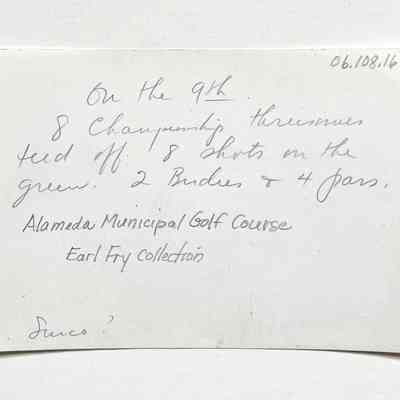 06.108.16
On the 9th.
8 Championship threesomes
teed off. 8 shots on the
green. 2 Birdies & 4 pars.
Alameda Municipal Golf Course
Earl Fry Collection
?